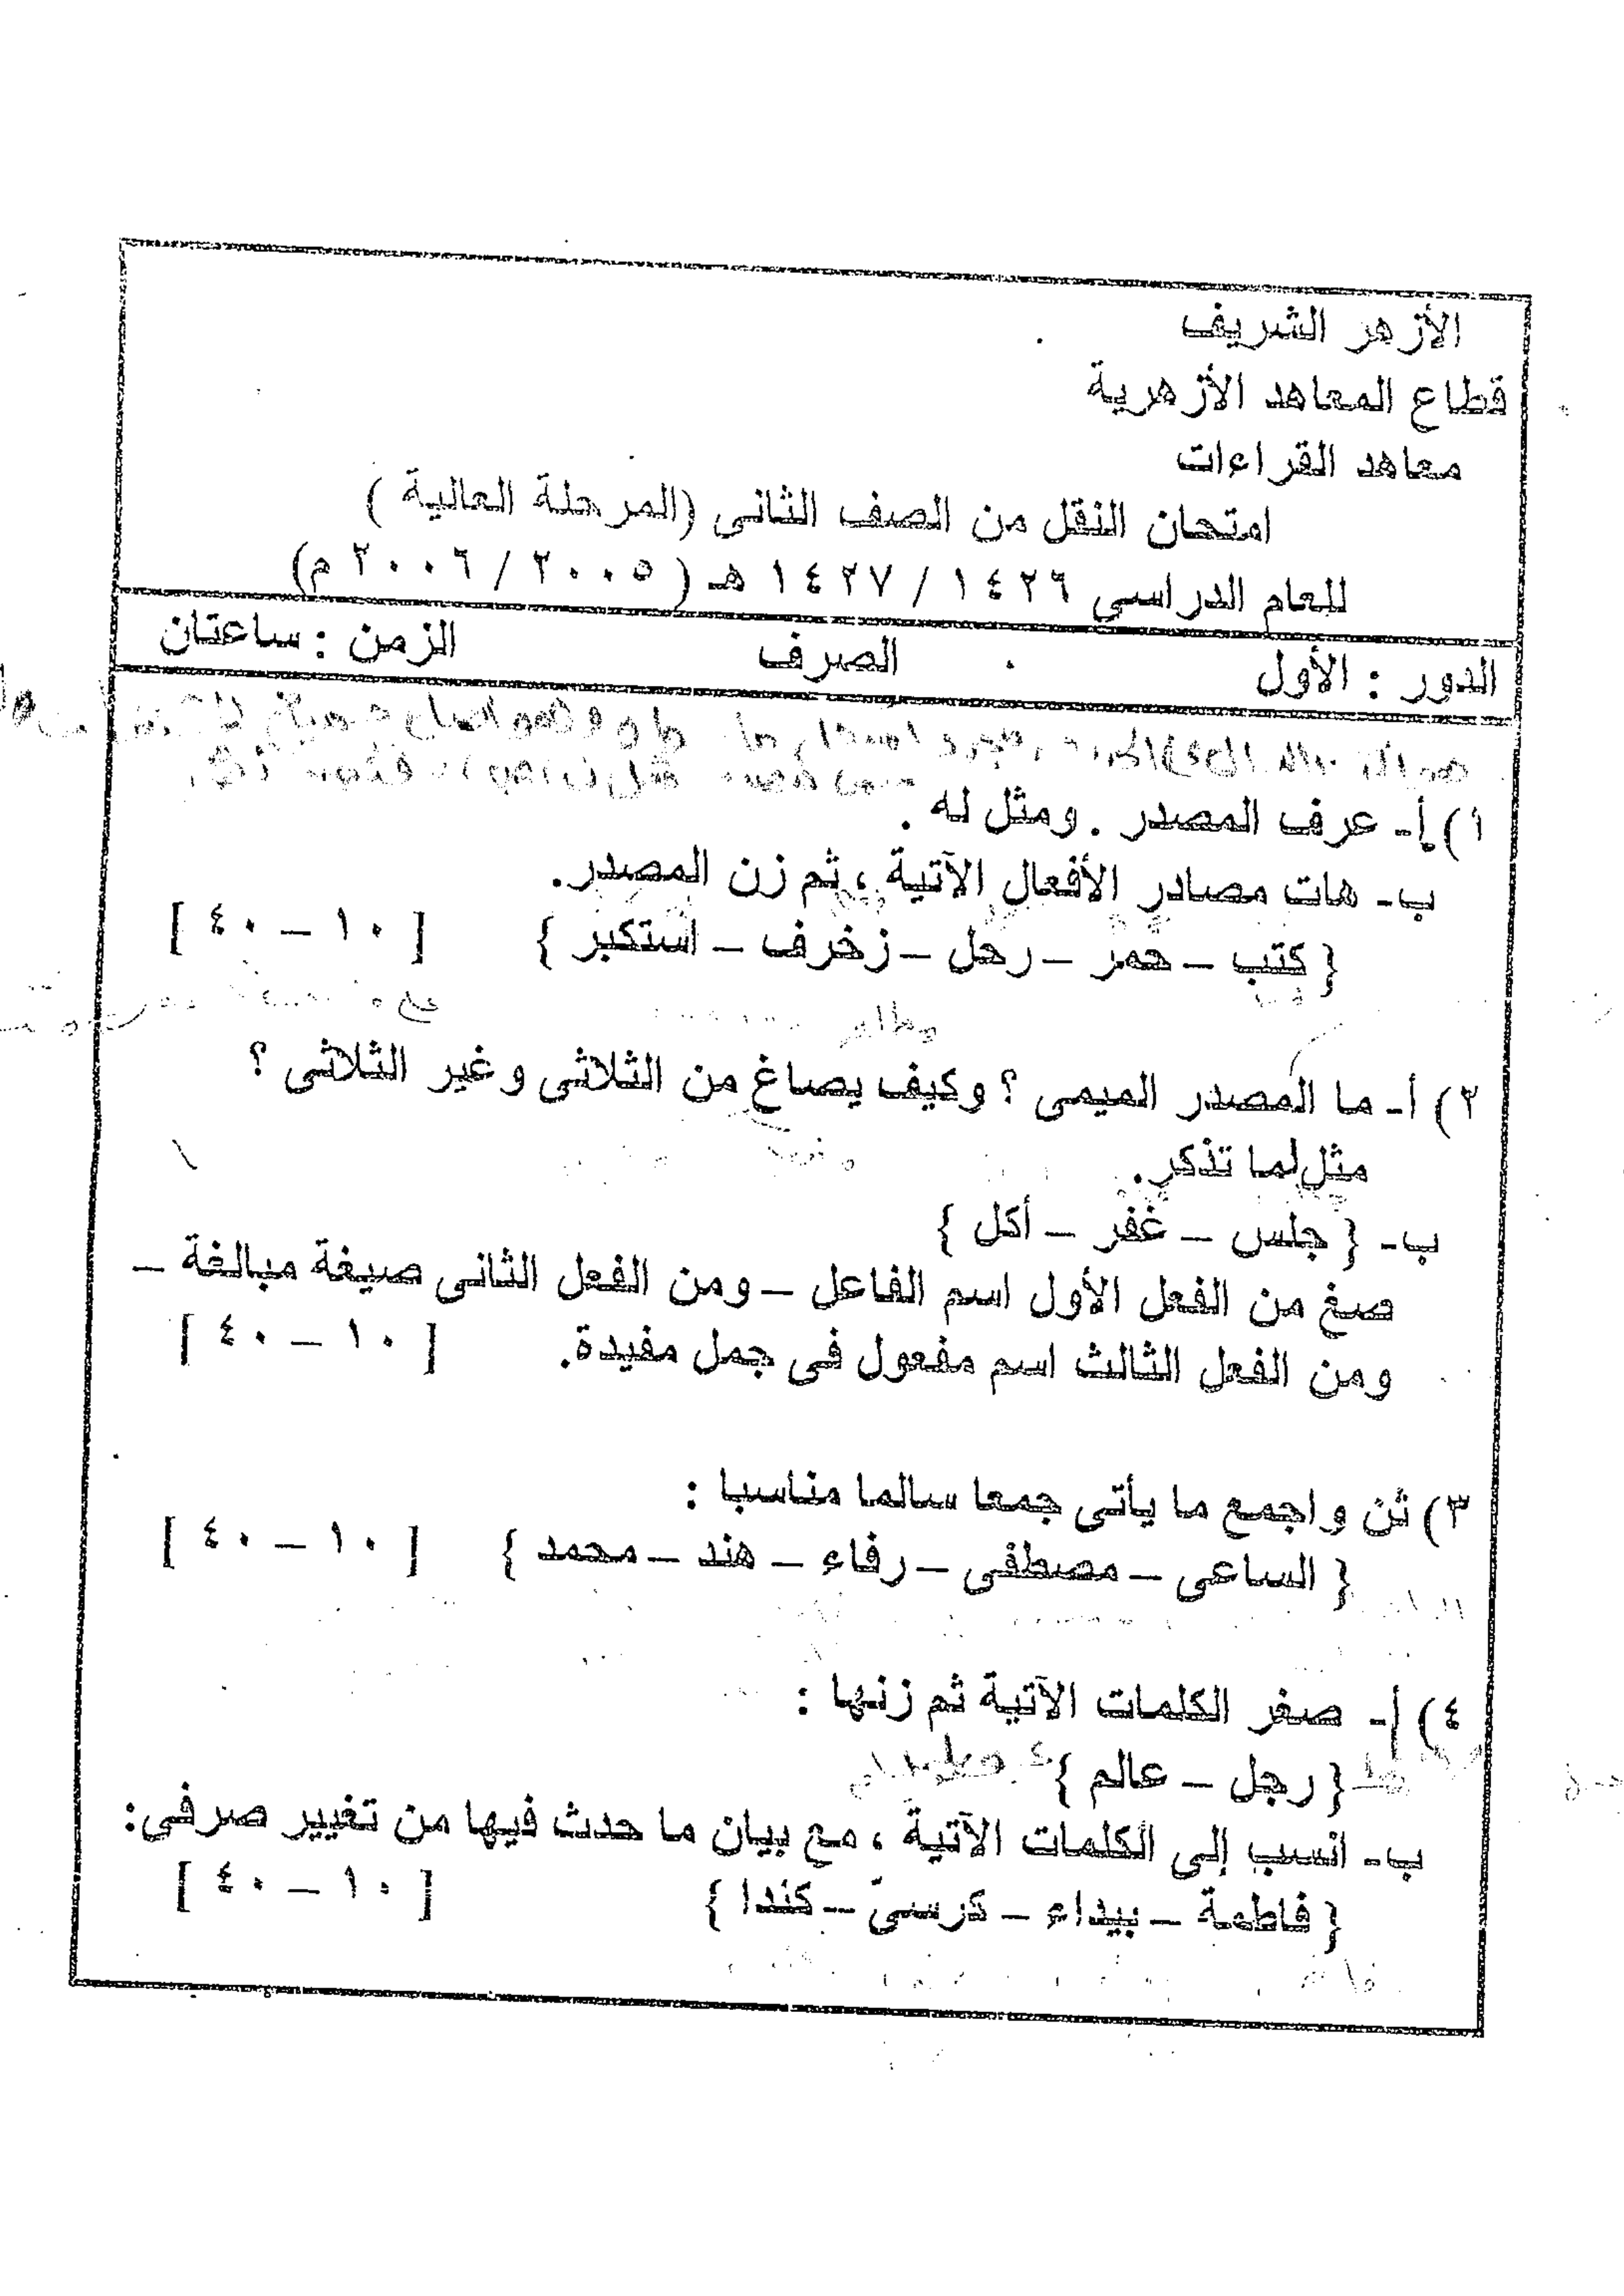 الأزهر الشريف
قطاع المعاهد الأزهرية
معاهد القراءات
امتحان النقل من الصف الثانى (المرحلة العالية )
للعام الدراسي ١٤٢٦ / ١٤٢٧ هـ ( ٢٠٠٥ / ٢٠٠٦ م)
الدور : الأول الصرف الزمن : ساعتان
١) أ- عرف المصدر . ومثل له .
ب- هات مصادر الأفعال الآتية ، ثم زن المصدر.
{ كتب – حمر – رحل – زخرف – استكبر } [ ١٠ – ٤٠ ]
٢) أ- ما المصدر الميمى ؟ وكيف يصاغ من الثلاثى وغير الثلاثى ؟
مثل لما تذكر.
ب- { جلس – غفر – أكل }
صغ من الفعل الأول اسم الفاعل – ومن الفعل الثانى صيغة مبالغة –
ومن الفعل الثالث اسم مفعول فى جمل مفيدة. [ ١٠ – ٤٠ ]
٣) ثن واجمع ما يأتى جمعا سالما مناسبا :
{ الساعى – مصطفى – رفاء – هند – محمد } [ ١٠ – ٤٠ ]
٤) أ- صغر الكلمات الآتية ثم زنها :
{ رجل – عالم }
ب- انسب إلى الكلمات الآتية ، مع بيان ما حدث فيها من تغيير صرفى:
{ فاطمة – بيداء – كرسىّ – كندا } [ ١٠ – ٤٠ ]